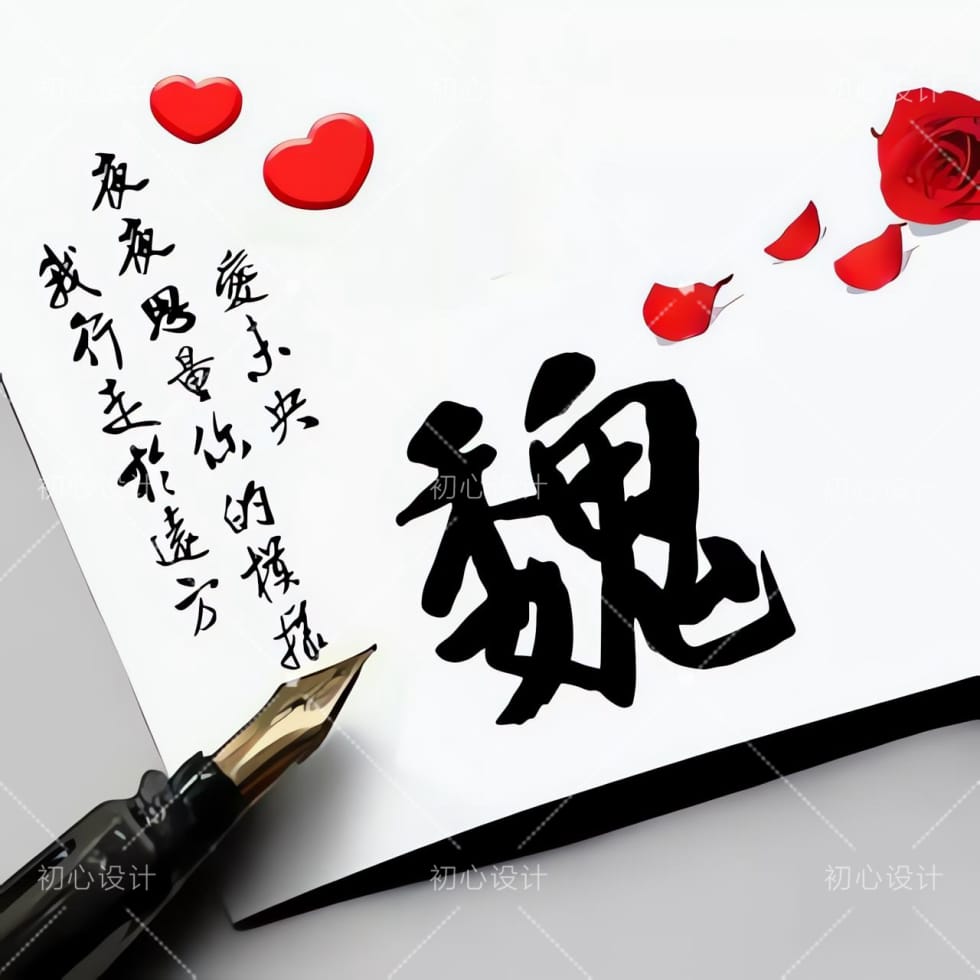 愛未央
夜夜思量你的模樣
我行走於遠方
魏
初心设计
初心设计
初心设计
初心设计
初心设计
初心设计
初心设计
初心设计
初心设计